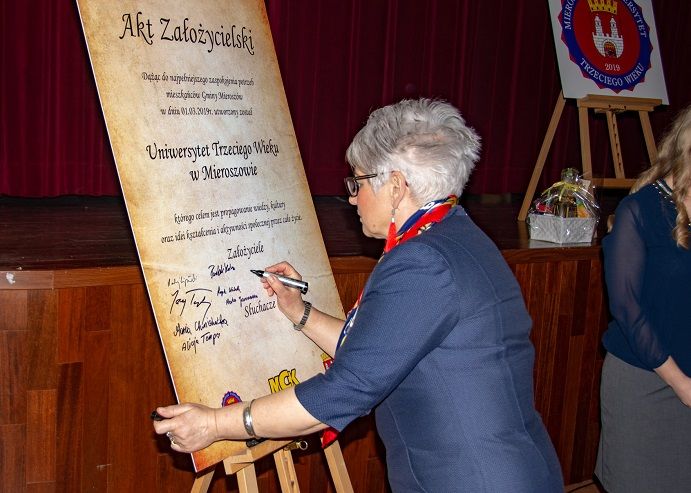 Akt Założycielski
Dążąc do najpełniejszego zaspokojenia potrzeb
mieszkańców Gminy Mieroszów
w dniu 01.03.2019r. utworzony został
Uniwersytet Trzeciego Wieku
w Mieroszowie
którego celem jest propagowanie wiedzy, kultury
oraz idei kształcenia i aktywności społecznej przez całe życie.
Założyciele
Słuchacze
Alicja
MCK
2019
TRZECIEGO WIEKU